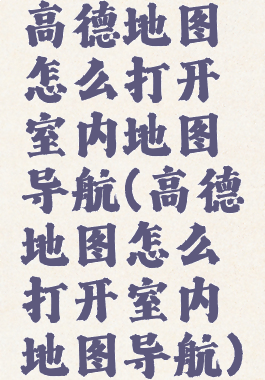 高德地图
怎么打开
室内地图
导航(高德
地图怎么
打开室内
地图导航)